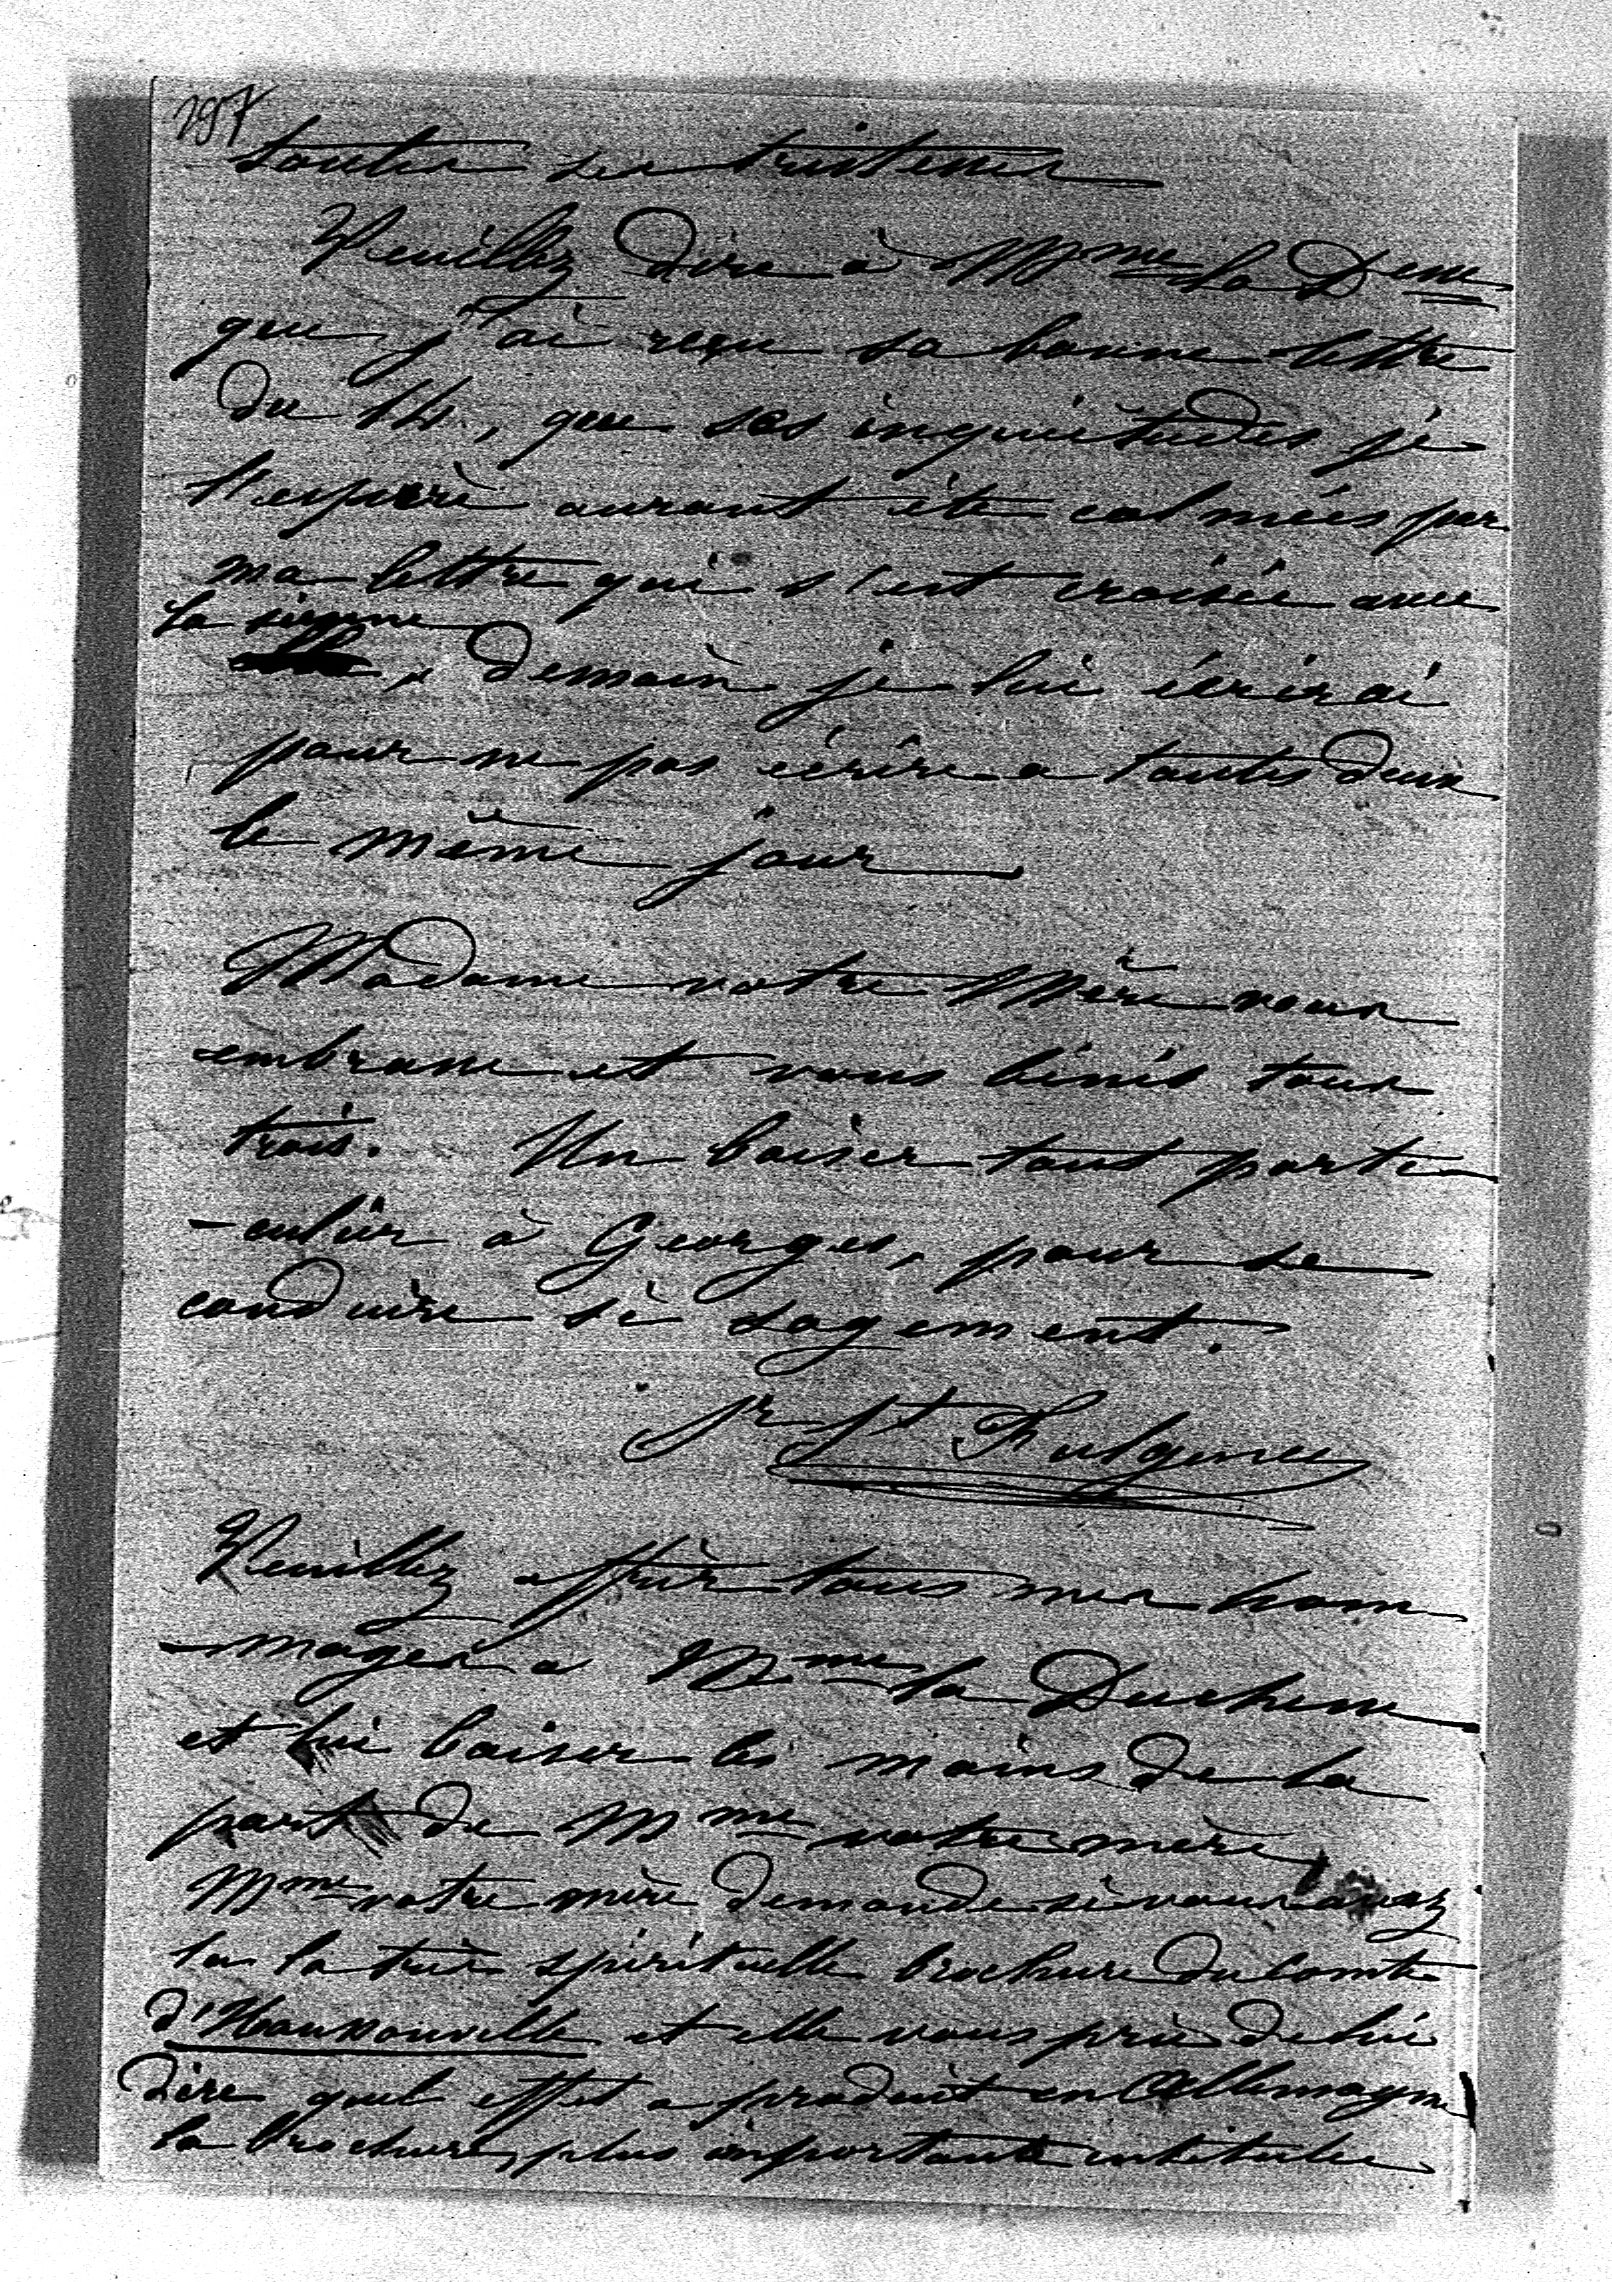 297
toutes ses tristesses
Veuillez dire à Mme la Desse
que j'ai reçu sa bonne lettre
du 14, que ses inquiétudes je
l'espère auront été calmées par
ma lettre qui s'est croisée avec
la sienne
elle, demain je lui écrirai
pour ne pas écrire a toutes deux
le même jour
Madame votre Mère vous
embrasse et vous bénit tous
trois. Un baiser tout parti-
-culier à Georges, pour se
conduire si sagement.
St Fulgence
Veuillez offrir tous mes hom-
-mages a Mme la Duchesse
et lui baiser les mains de la
part de Mme votre mère,
Mme votre mère demande si vous avez
lu la très spirituelle brochure du Comte
d'Haussonville et elle vous prie de lui
dire quel effet a produit en Allemagne
la brochure, plus importante intitulée